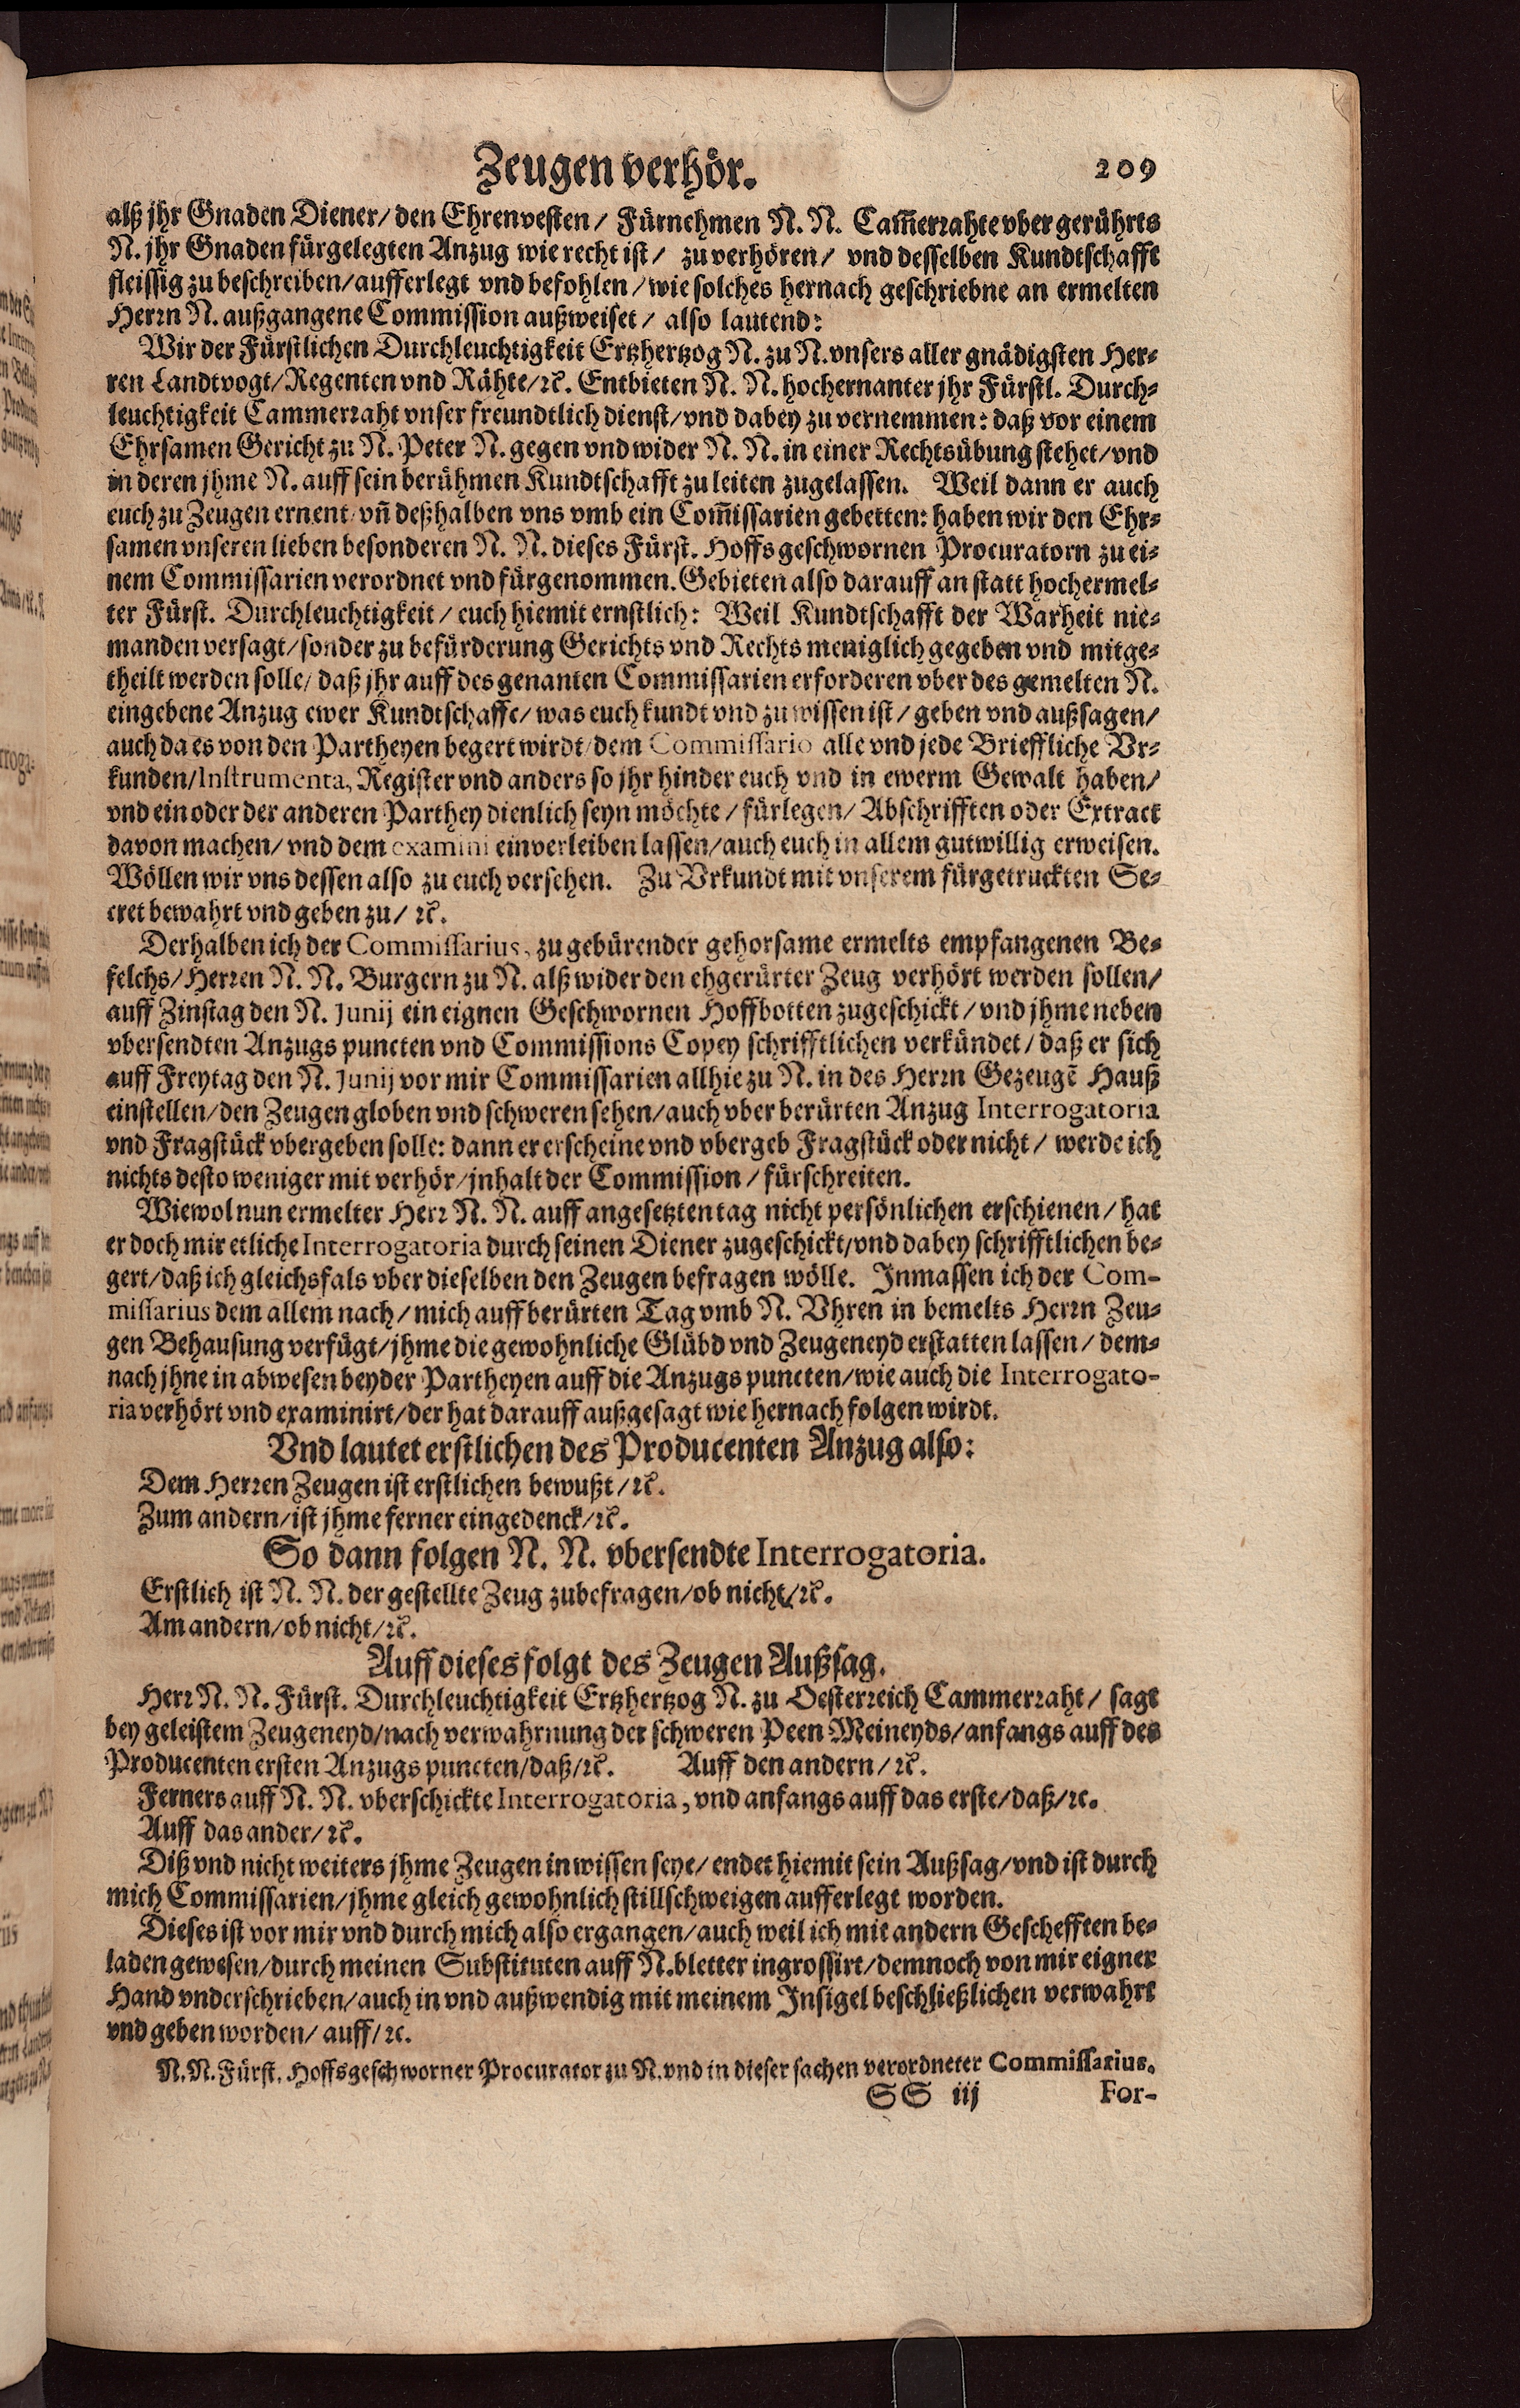 Zeugen verhör. 209
alß jhr Gnaden Diener/ den Ehrenvesten/ Fürnehmen N. N. Cam̃errahte vber gerührts
N. jhr Gnaden fürgelegten Anzug wie recht ist/ zu verhören/ vnd desselben Kundtschafft
fleissig zu beschreiben/ aufferlegt vnd befohlen/ wie solches hernach geschriebne an ermelten
Herrn N. außgangene Commission außweiset/ also lautend:
Wir der Fürstlichen Durchleuchtigkeit Ertzhertzog N. zu N. vnsers aller gnädigsten Her-
ren Landtvogt/ Regenten vnd Rähte/ ꝛc. Entbieten N. N. hochernanter jhr Fürstl. Durch-
leuchtigkeit Cammerraht vnser freundtlich dienst/ vnd dabey zu vernemmen: daß vor einem
Ehrsamen Gericht zu N. Peter N. gegen vnd wider N. N. in einer Rechtsübung stehet/ vnd
in deren jhme N. auff sein berühmen Kundtschafft zu leiten zugelassen. Weil dann er auch
euch zu Zeugen ernent/ vñ deßhalben vns vmb ein Com̃issarien gebetten: haben wir den Ehr-
samen vnseren lieben besonderen N. N. dieses Fürst. Hoffs geschwornen Procuratorn zu ei-
nem Commissarien verordnet vnd fürgenommen. Gebieten also darauff an statt hochermel-
ter Fürst. Durchleuchtigkeit/ euch hiemit ernstlich: Weil Kundtschafft der Warheit nie-
manden versagt/ sonder zu befürderung Gerichts vnd Rechts meniglich gegeben vnd mitge-
theilt werden solle/ daß jhr auff des genanten Commissarien erforderen vber des gemelten N.
eingebene Anzug ewer Kundtschaffe/ was euch kundt vnd zu wissen ist/ geben vnd außsagen/
auch da es von den Partheyen begert wirdt/ dem Commissario alle vnd jede Brieffliche Vr-
kunden/ Instrumenta, Register vnd anders so jhr hinder euch vnd in ewerm Gewalt haben/
vnd ein oder der anderen Parthey dienlich seyn möchte/ fürlegen/ Abschrifften oder Extract
davon machen/ vnd dem examini einverleiben lassen/ auch euch in allem gutwillig erweisen.
Wöllen wir vns dessen also zu euch versehen. Zu Vrkundt mit vnserem fürgetruckten Se-
cret bewahrt vnd geben zu/ ꝛc.
Derhalben ich der Commissarius, zu gebürender gehorsame ermelts empfangenen Be-
felchs/ Herren N. N. Burgern zu N. alß wider den ehgerürter Zeug verhört werden sollen/
auff Zinstag den N. Junij ein eignen Geschwornen Hoffbotten zugeschickt/ vnd jhme neben
vbersendten Anzugs puncten vnd Commissions Copey schrifftlichen verkündet/ daß er sich
auff Freytag den N. Junij vor mir Commissarien allhie zu N. in des Herrn Gezeugẽ Hauß
einstellen/ den Zeugen globen vnd schweren sehen/ auch vber berürten Anzug Interrogatoria
vnd Fragstück vbergeben solle: dann er erscheine vnd vbergeb Fragstück oder nicht/ werde ich
nichts desto weniger mit verhör/ jnhalt der Commission/ fürschreiten.
Wiewol nun ermelter Herr N. N. auff angesetzten tag nicht persönlichen erschienen/ hat
er doch mir etliche Interrogatoria durch seinen Diener zugeschickt/ vnd dabey schrifftlichen be-
gert/ daß ich gleichsfals vber dieselben den Zeugen befragen wölle. Inmassen ich der Com-
missarius dem allem nach/ mich auff berürten Tag vmb N. Vhren in bemelts Herrn Zeu-
gen Behausung verfügt/ jhme die gewohnliche Glübd vnd Zeugeneyd erstatten lassen/ dem-
nach jhne in abwesen beyder Partheyen auff die Anzugs puncten/ wie auch die Interrogato-
ria verhört vnd examinirt/ der hat darauff außgesagt wie hernach folgen wirdt.
Vnd lautet erstlichen des Producenten Anzug also:
Dem Herren Zeugen ist erstlichen bewußt/ ꝛc.
Zum andern/ ist jhme ferner eingedenck/ ꝛc.
So dann folgen N. N. vbersendte Interrogatoria.
Erstlich ist N. N. der gestellte Zeug zubefragen/ ob nicht/ ꝛc.
Am andern/ ob nicht/ ꝛc.
Auff dieses folgt des Zeugen Außsag.
Herr N. N. Fürst. Durchleuchtigkeit Ertzhertzog N. zu Oesterreich Cammerraht/ sagt
bey geleistem Zeugeneyd/ nach verwahrnung der schweren Peen Meineyds/ anfangs auff des
Producenten ersten Anzugs puncten/ daß/ ꝛc. Auff den andern/ ꝛc.
Ferners auff N. N. vberschickte Interrogatoria, vnd anfangs auff das erste/ daß/ ꝛc.
Auff das ander/ ꝛc.
Diß vnd nicht weiters jhme Zeugen in wissen seye/ endet hiemit sein Außsag/ vnd ist durch
mich Commissarien/ jhme gleich gewohnlich stillschweigen aufferlegt worden.
Dieses ist vor mir vnd durch mich also ergangen/ auch weil ich mit andern Geschefften be-
laden gewesen/ durch meinen Substituten auff N. bletter ingrossirt/ demnoch von mir eigner
Hand vnderschrieben/ auch in vnd außwendig mit meinem Insigel beschließlichen verwahrt
vnd geben worden/ auff/ ꝛc.
N. N. Fürst. Hoffsgeschworner Procurator zu N. vnd in dieser sachen verordneter Commissarius.
SS iij For-